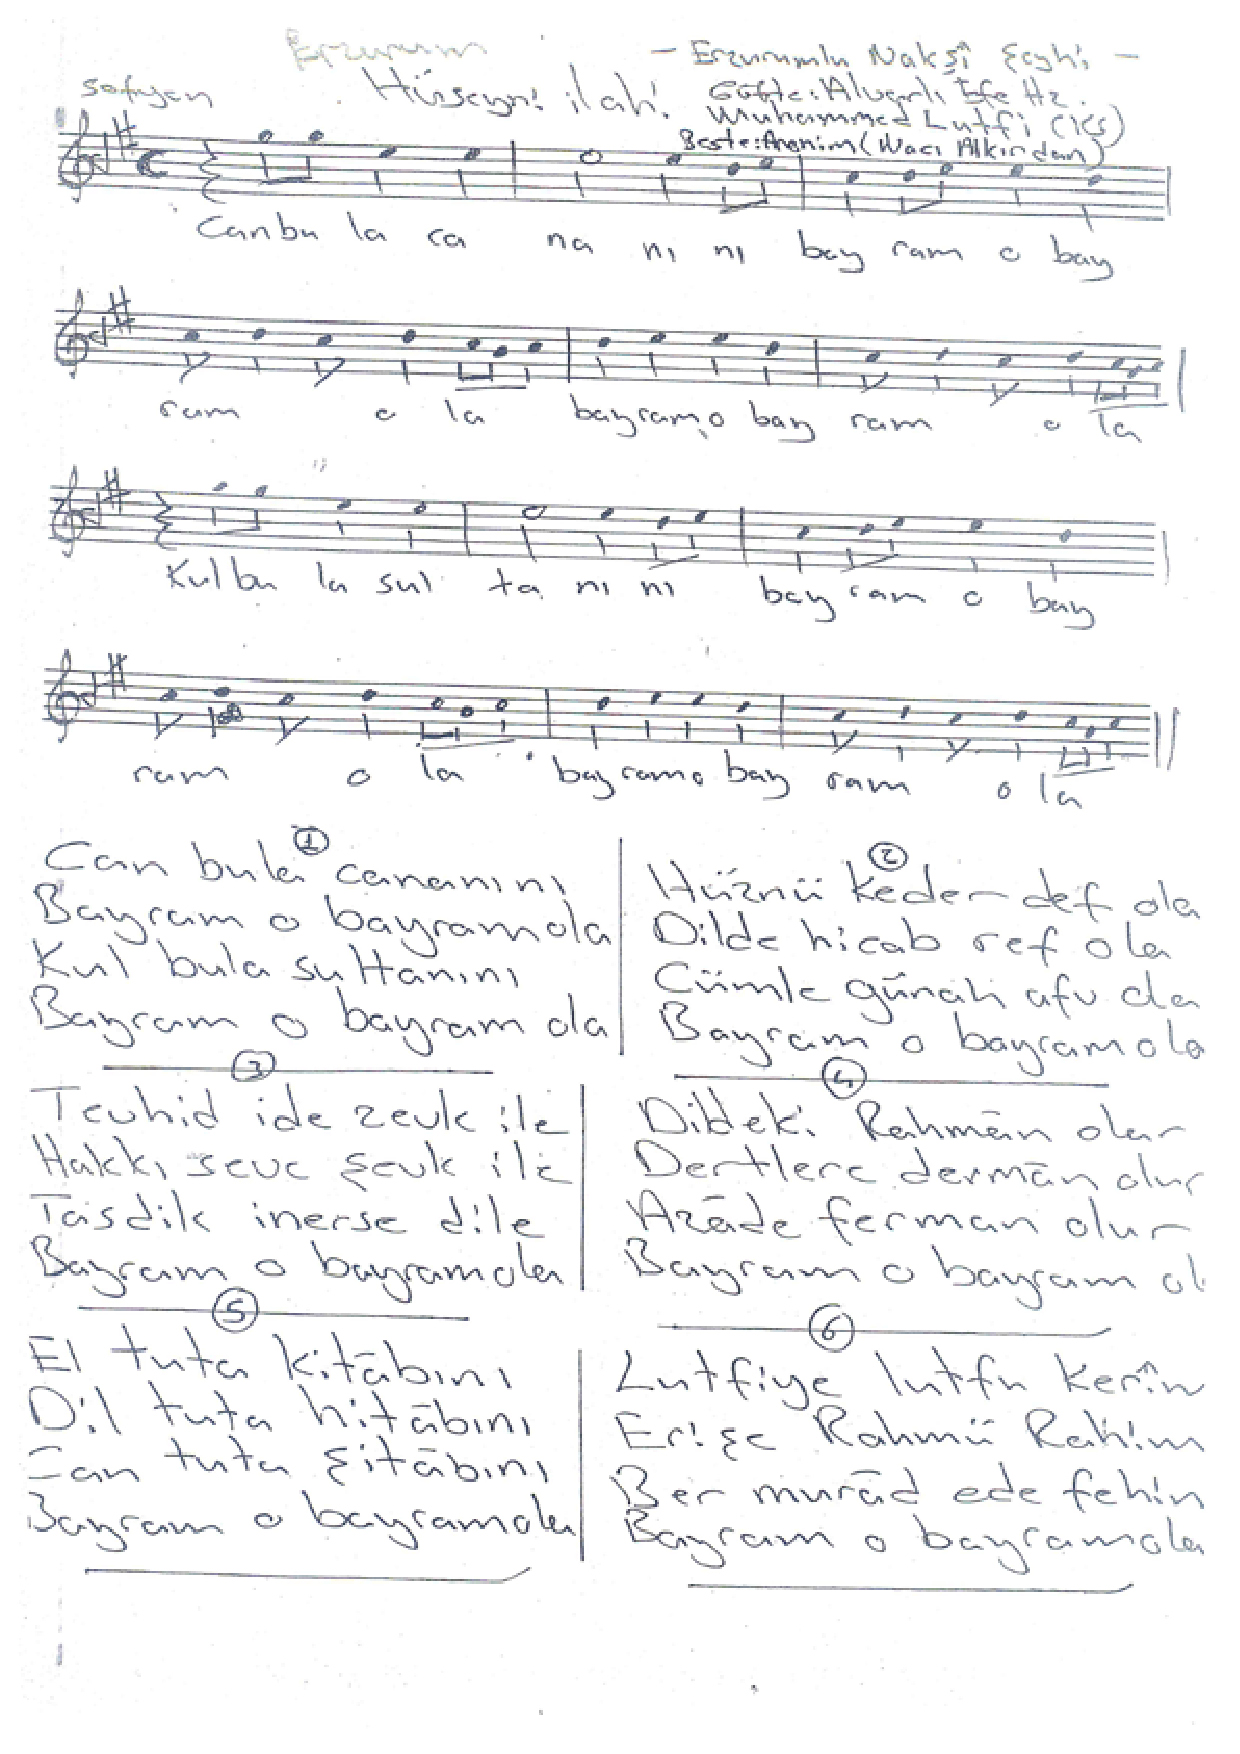 Erzurum
- Erzurumlu Nakşî Şeyhi -
sofyan
Hüseyni ilahi
Güfte: Alvarlı Efe Hz.
Muhammed Lutfi (KS)
Beste: Anonim (Naci Alkırdan)
Canbu la ca na nı nı bay ram o bay
ram o la bayram o bay ram o la
Kul bu la sul ta nı nı bay ram o bay
ram o la bay ram o bay ram o la
1
Can bula cananını
Bayram o bayram ola
Kul bula sultanını
Bayram o bayram ola
2
Hüznü keder def ola
Dilde hicab ref ola
Cümle günah afv ola
Bayram o bayram ola
3
Tevhid ide zevk ile
Hakkı seve şevk ile
Tasdik inerse dile
Bayram o bayram ola
4
Dildeki Rahmān olur
Dertlere dermān olur
Azāde ferman olur
Bayram o bayram ol
5
El tuta kitābını
Dil tuta hitābını
Can tuta şitābını
Bayram o bayram ola
6
Lutfiye lutfu Kerîm
Erişe Rahmü Rahim
Ber murād ede fehim
Bayram o bayram ola